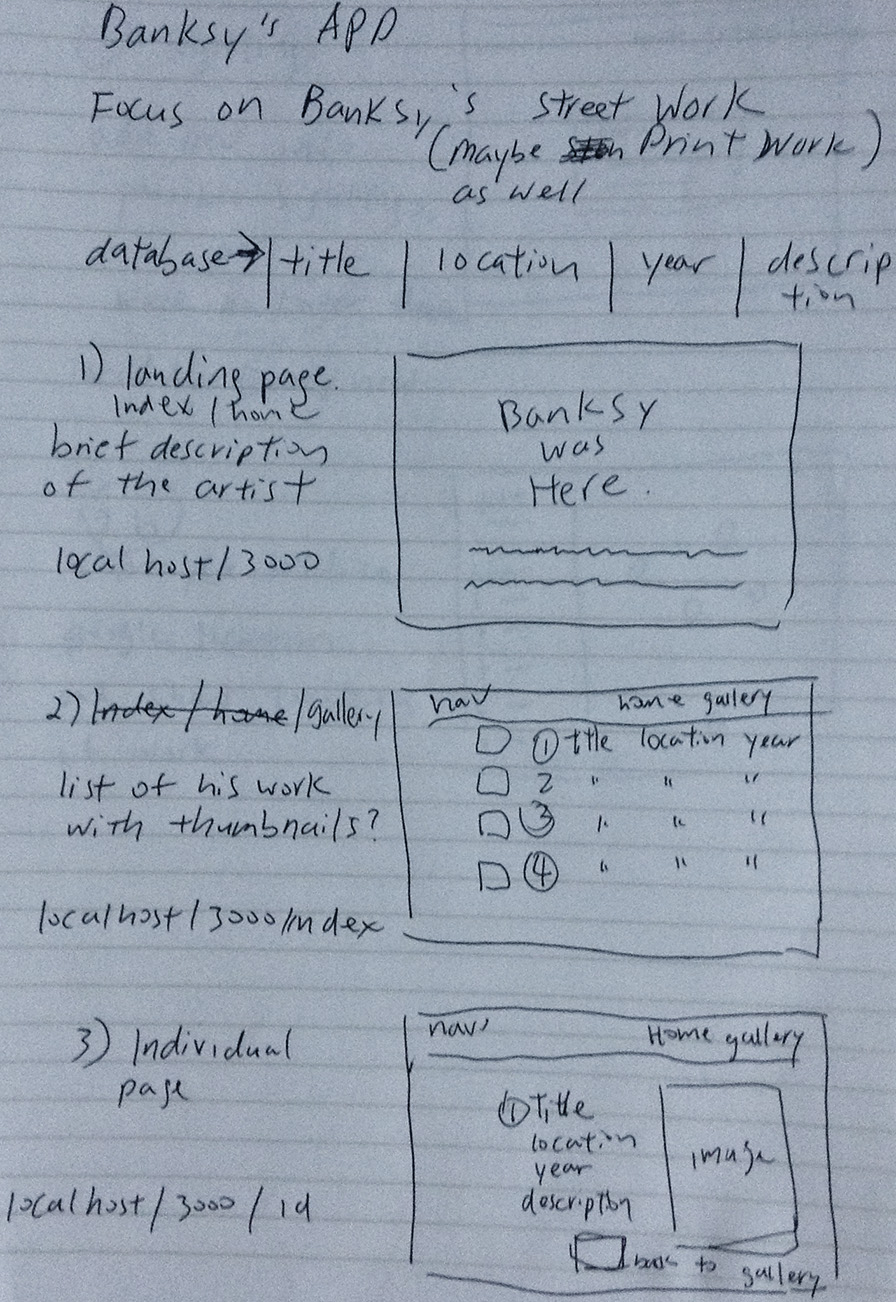 Banksy's APP
Focus on Banksy's street work
(maybe Print work)
as well
database→ | title | location | year | descrip
tion
1) landing page.
Index / home
brief description
of the artist
local host/3000
Banksy
was
Here.
2) Index / home /gallery
list of his work
with thumbnails?
localhost/3000/Index
nav home gallery
① title location year
2 " " "
③ " " "
④ " " "
3) Individual
page
localhost/3000/id
nav' Home gallery
① Title
location
year
description
image
back to gallery